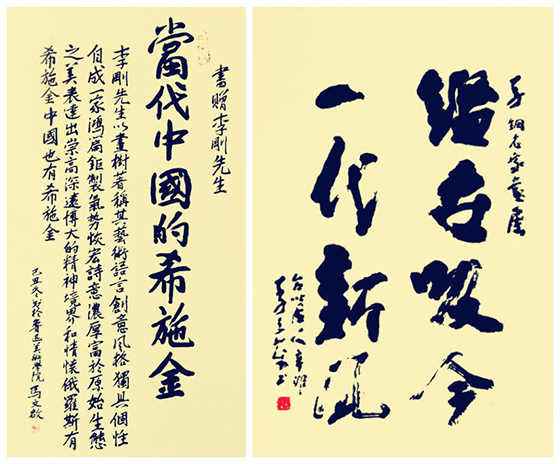 書贈李剛先生
當代中國的希施金
李剛先生以畫樹著稱其藝術語言創意風格獨具個性
自成一家鴻篇鉅製氣勢恢宏詩意濃厚富於原始生態
之美表達出崇高深遠博大的精神境界和情懷俄羅斯有
希施金中國也有希施金
己丑冬於魯迅美術學院 馬文啟
鑑古吸今
一代新風